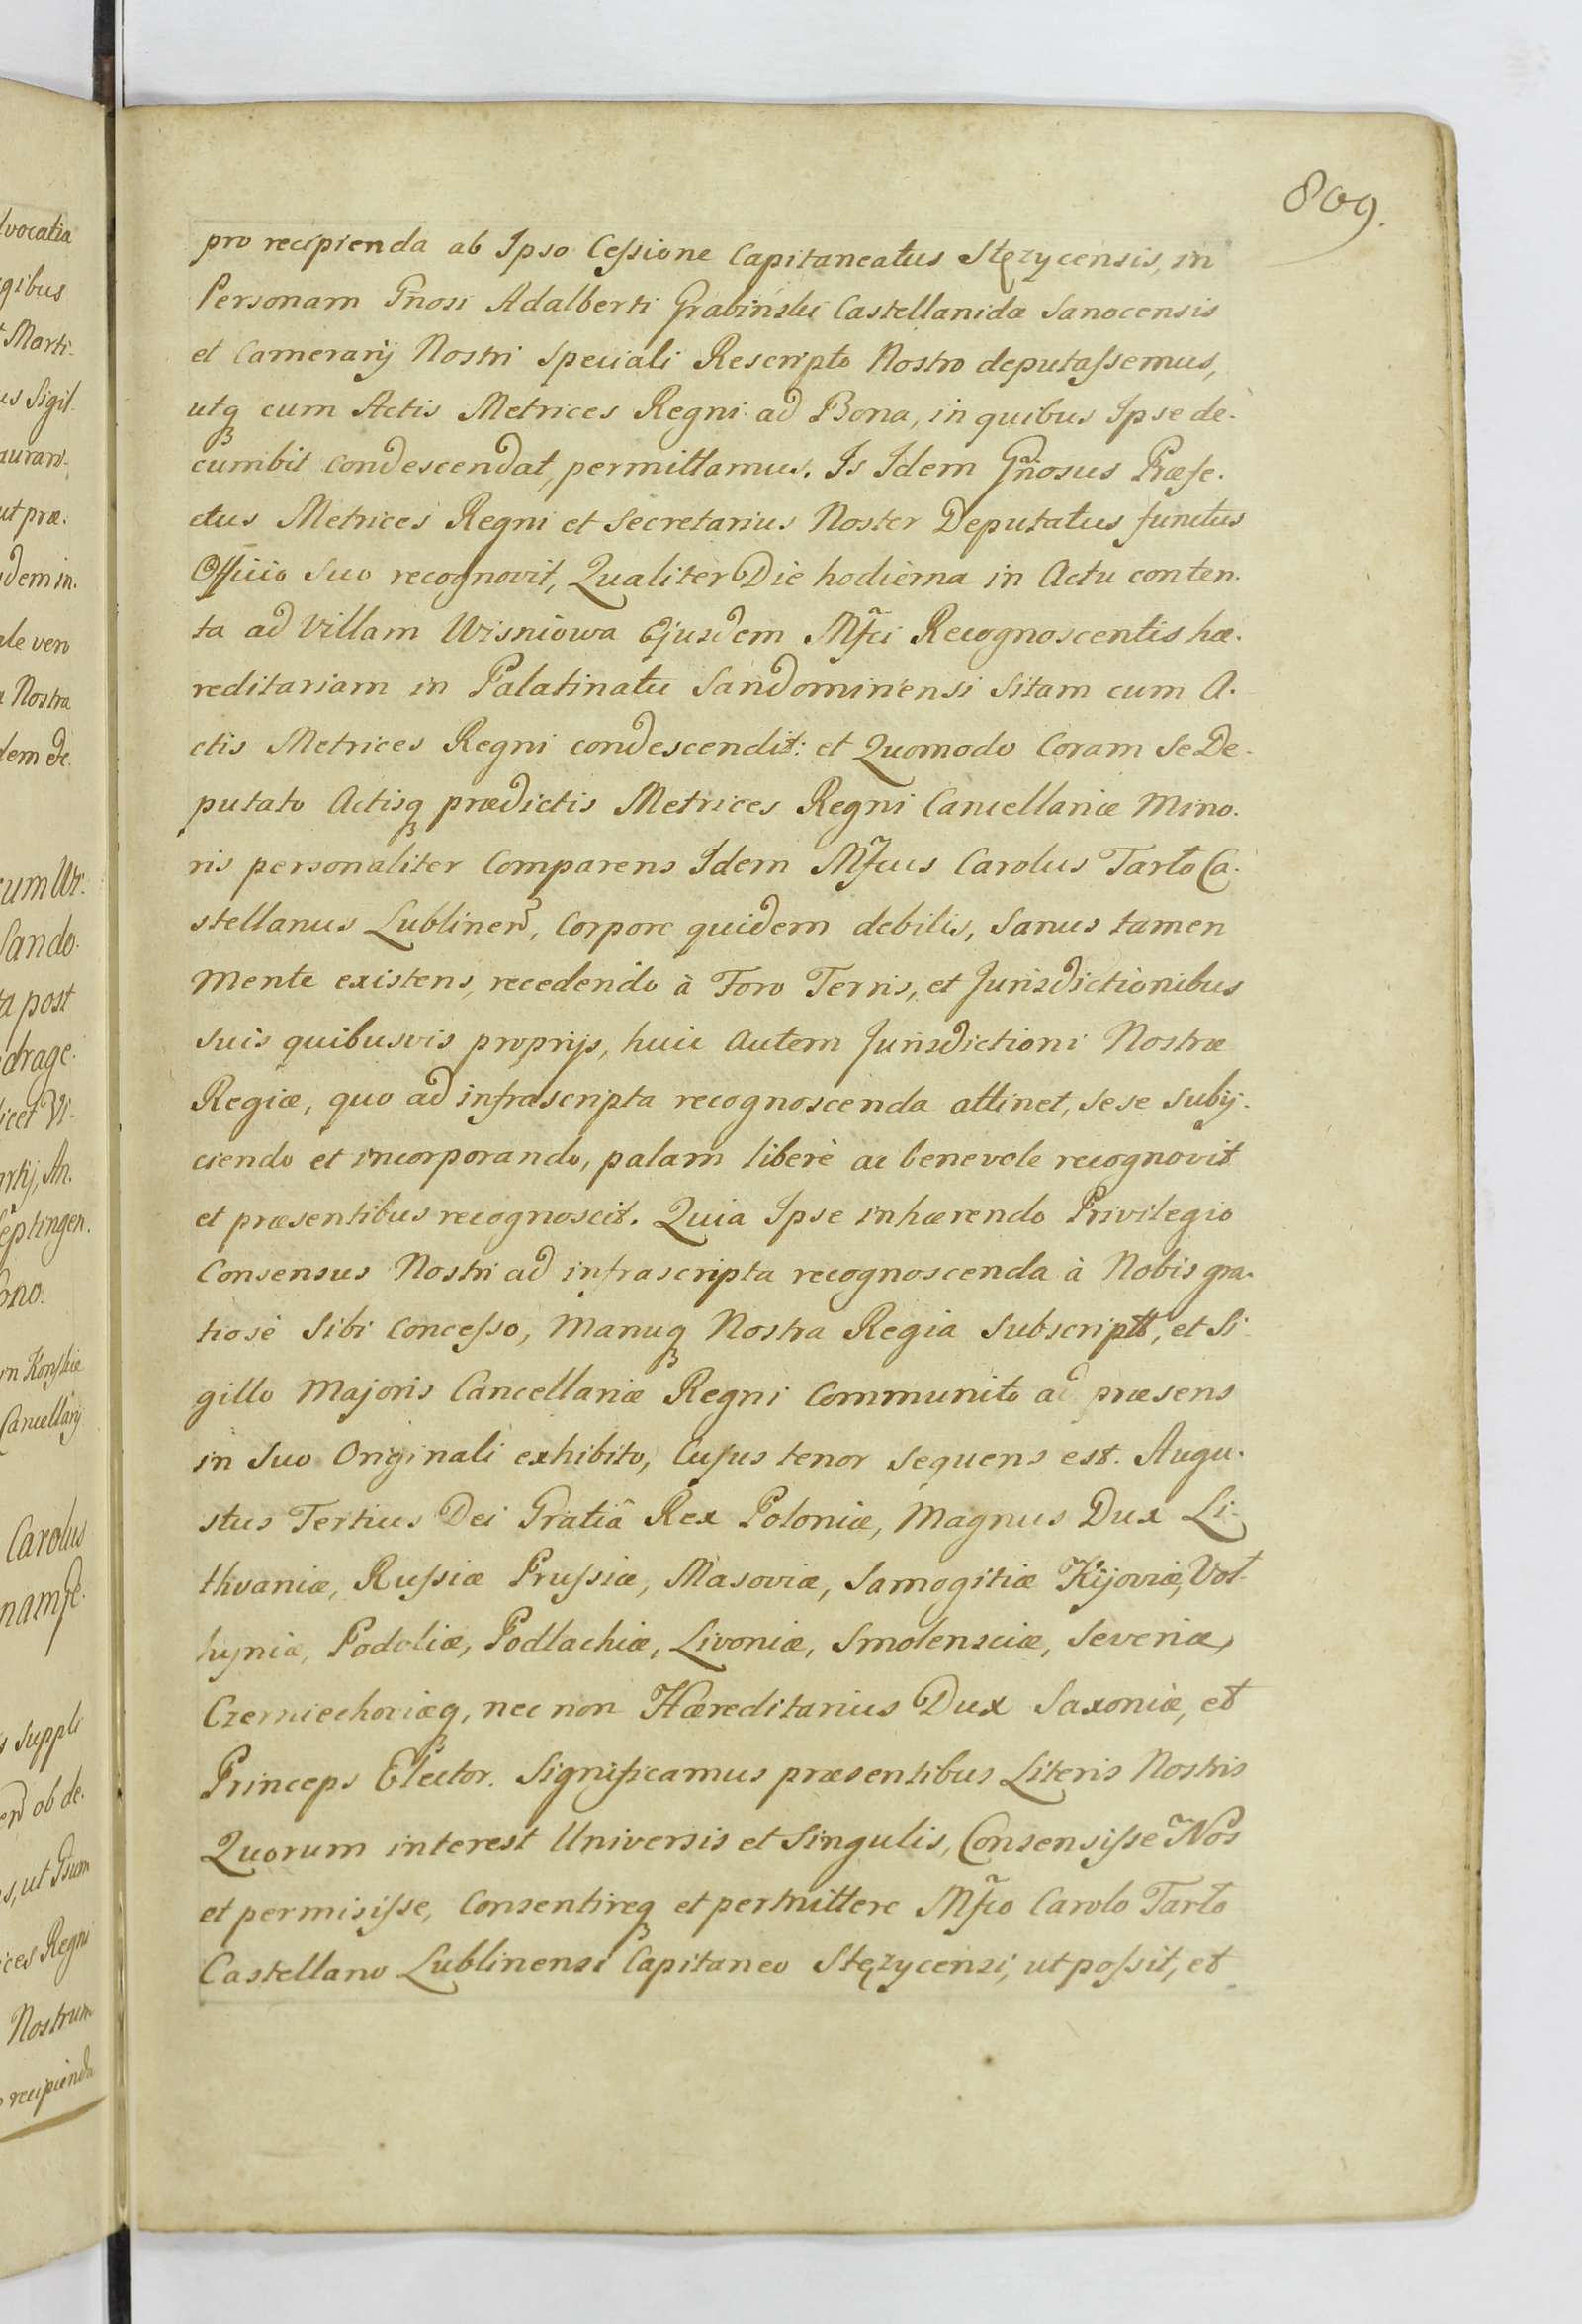 809.
lvocatia
gibus
t Marti-
us Sigil-
auran-
ut præ-
dem in-
ale vero
a Nostra
dem etc.
cum Wr-
Sando-
ta post
drage-
licet Vi-
artij, An-
Septingen-
ono.
yn Końskie
Cancellarij
Carolus
s Suppli
ob de-
s, ut Ipsum
ices Regni
Nostrum
recipienda
pro recipienda ab Ipso Cessione Capitaneatus Stęzycensis, in
Personam Gnosi Adalberti Grabiński Castellanidæ Sanocensis
et Camerarij Nostri Speciali Rescripto Nostro deputassemus,
utq cum Actis Metrices Regni ad Bona, in quibus Ipse de-
cumbit condescendat, permittamus. Is Idem Gnosus Præfe-
ctus Metrices Regni et Secretarius Noster Deputatus functus
Officio Suo recognovit, Qualiter Die hodierna in Actu conten-
ta ad Villam Wisniowa Ejusdem Mfci Recognoscentis hæ-
reditariam in Palatinatu Sandomiriensi Sitam cum A-
ctis Metrices Regni condescendit: et Quomodo Coram Se De-
putato Actisq prædictis Metrices Regni Cancellariæ Mino-
ris personaliter Comparens Idem Mfcus Carolus Tarło Ca-
stellanus Lublinen, Corpore quidem debilis, Sanus tamen
Mente existens, recedendo à Foro Terris, et Jurisdictionibus
Suis quibusvis proprijs, huic Autem Jurisdictioni Nostræ
Regiæ, quo ad infrascripta recognoscenda attinet, sese subij-
ciendo et incorporando, palam liberè ac benevole recognovit
et præsentibus recognoscit. Quia Ipse inhærendo Privilegio
Consensus Nostri ad infrascripta recognoscenda à Nobis gra-
tiosè Sibi Concesso, Manuq Nostra Regia Subscripto, et Si-
gillo Majoris Cancellariæ Regni Communito ad præsens
in Suo Originali exhibito, Cujus tenor Sequens est. Augu-
stus Tertius Dei Gratiâ Rex Poloniæ, Magnus Dux Li-
thvaniæ, Russiæ Prussiæ, Masoviæ, Samogitiæ Kijoviæ, Vol-
hyniæ, Podoliæ, Podlachiæ, Livoniæ, Smolensciæ, Severiæ,
Czerniechoviæq, nec non Hæreditarius Dux Saxoniæ, et
Princeps Elector. Significamus præsentibus Literis Nostris
Quorum interest Universis et Singulis, Consensisse Nos
et permisisse, Consentireq et permittere Mfco Carolo Tarło
Castellano Lublinensi Capitaneo Stęzycensi, ut possit, et